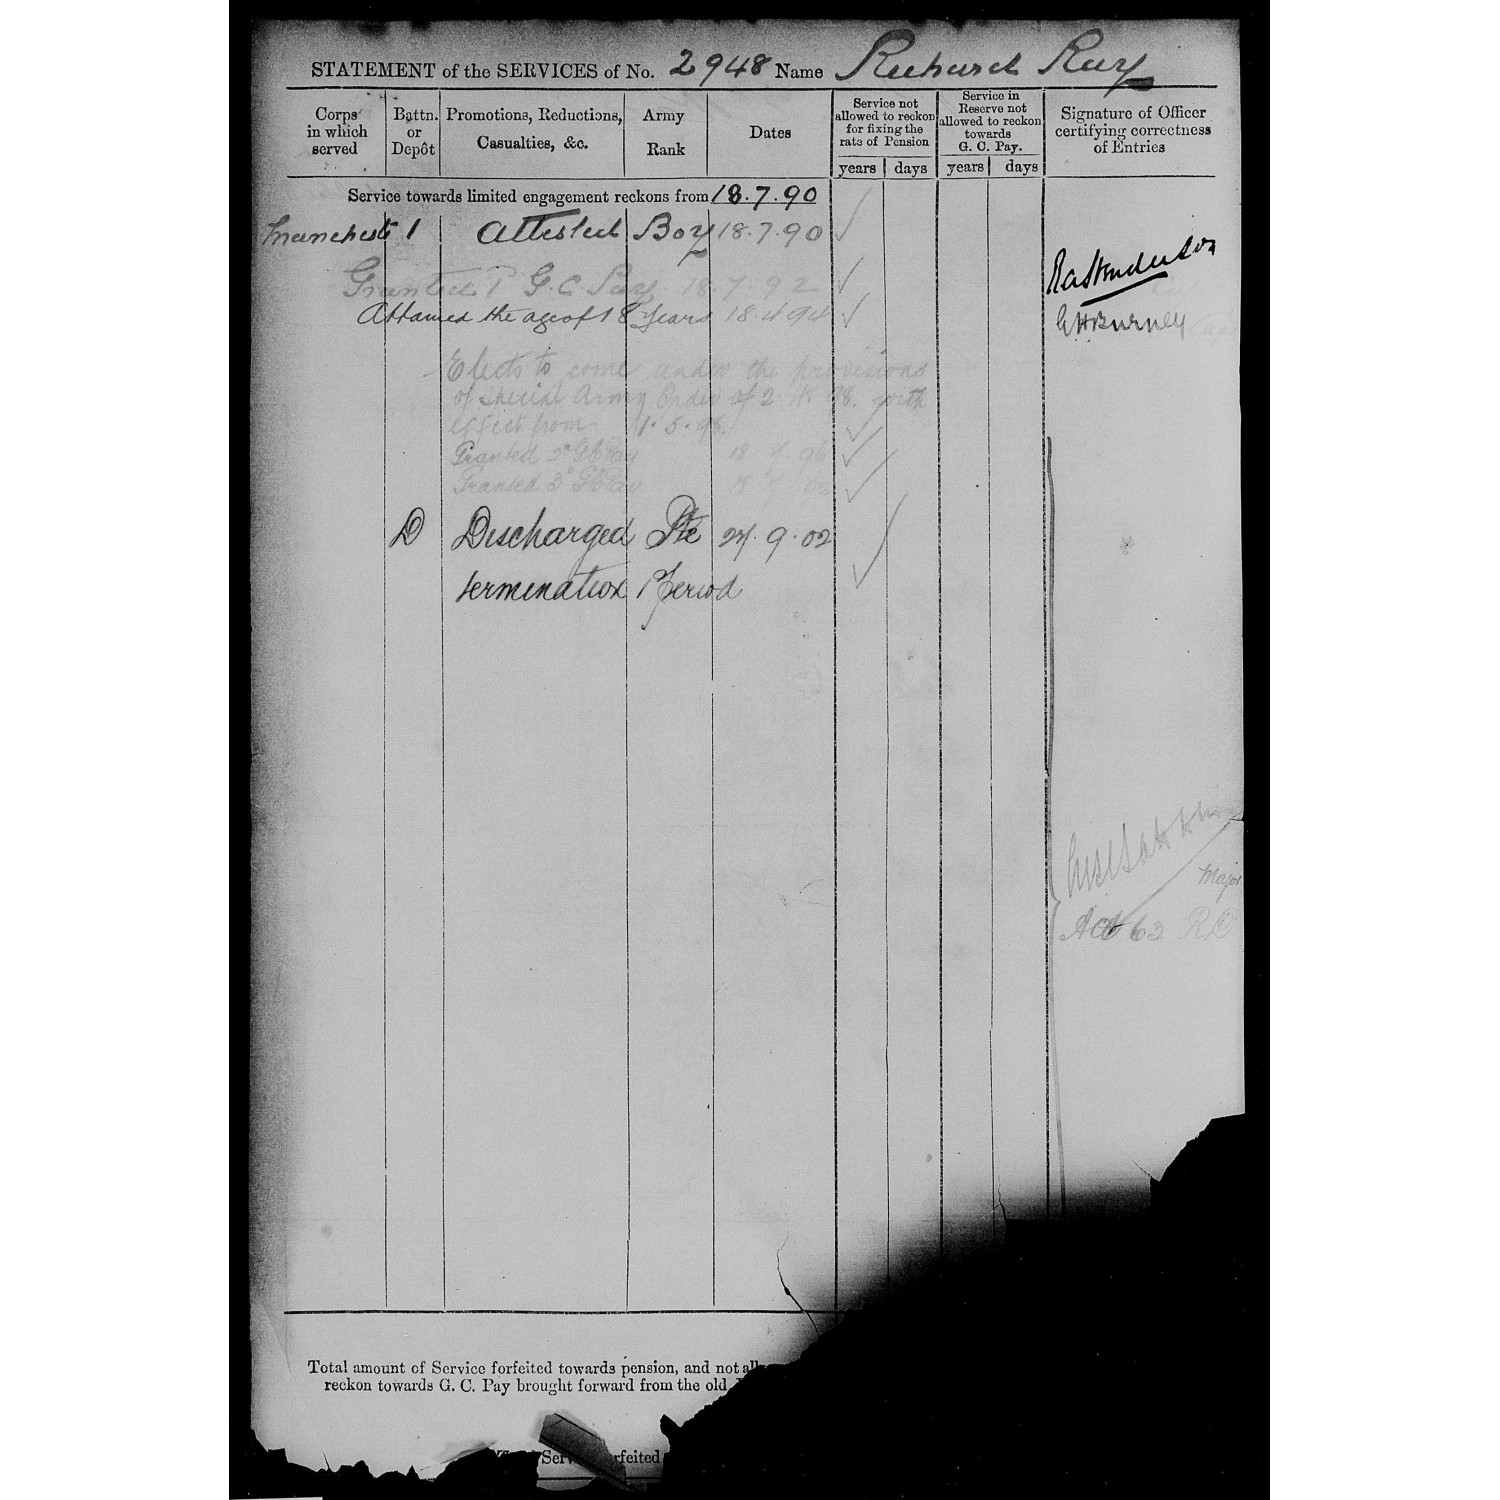 STATEMENT of the SERVICES of No. 2948 Name Richard Ray
Corps in which served
Battn. or Depôt
Promotions, Reductions, Casualties, &c.
Army Rank
Dates
Service not allowed to reckon for fixing the rate of Pension
years days
Service in Reserve not allowed to reckon towards G. C. Pay.
years days
Signature of Officer certifying correctness of Entries
Service towards limited engagement reckons from 18.7.90
Manchester 1 Attested Boy 18.7.90
Granted 1 G.C. Pay 18.7.92
Attained the age of 18 Years 18.4.94
G H Burney
Elects to come under the provisions
of special Army Order of 98. with
effect from 1.5.98.
Granted 2º G C Pay 18 96
Granted 3º G C Pay 18 02
D Discharged Pte 9.02
termination 1 Period
Major
Total amount of Service forfeited towards pension, and not
reckon towards G. C. Pay brought forward from the old